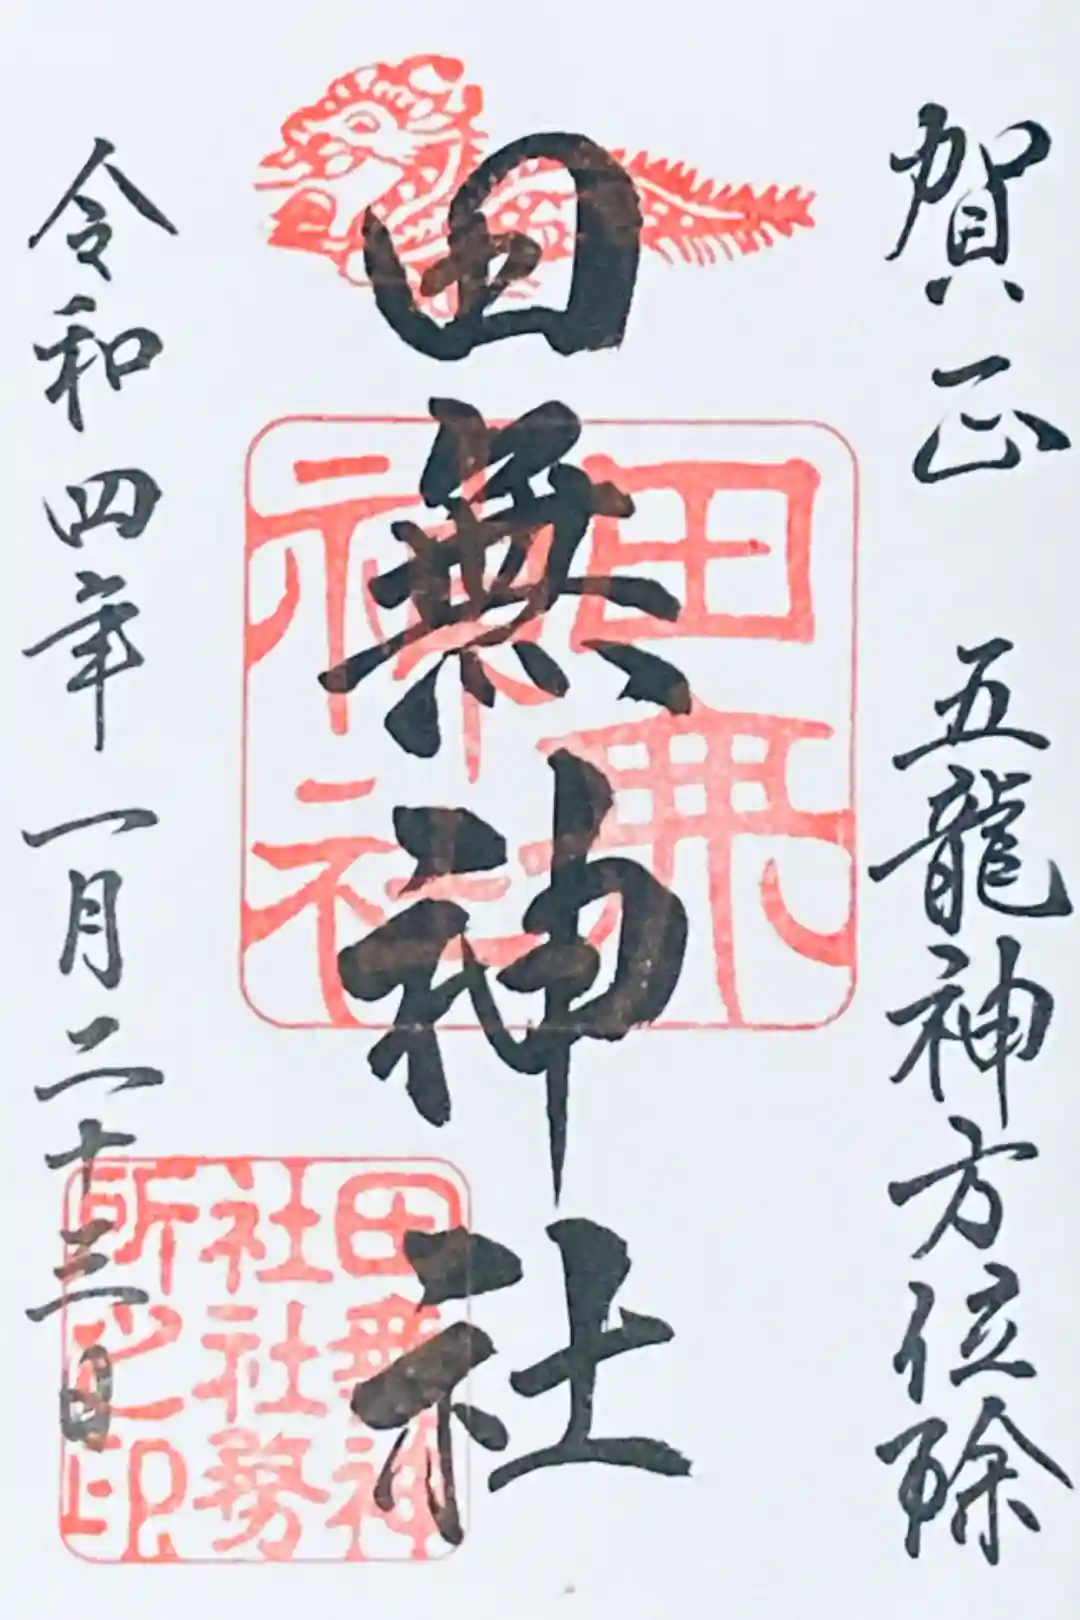 賀正　五龍神方位除
田無神社
令和四年一月二十三日
田無
神社
田無神
社社務
所之印